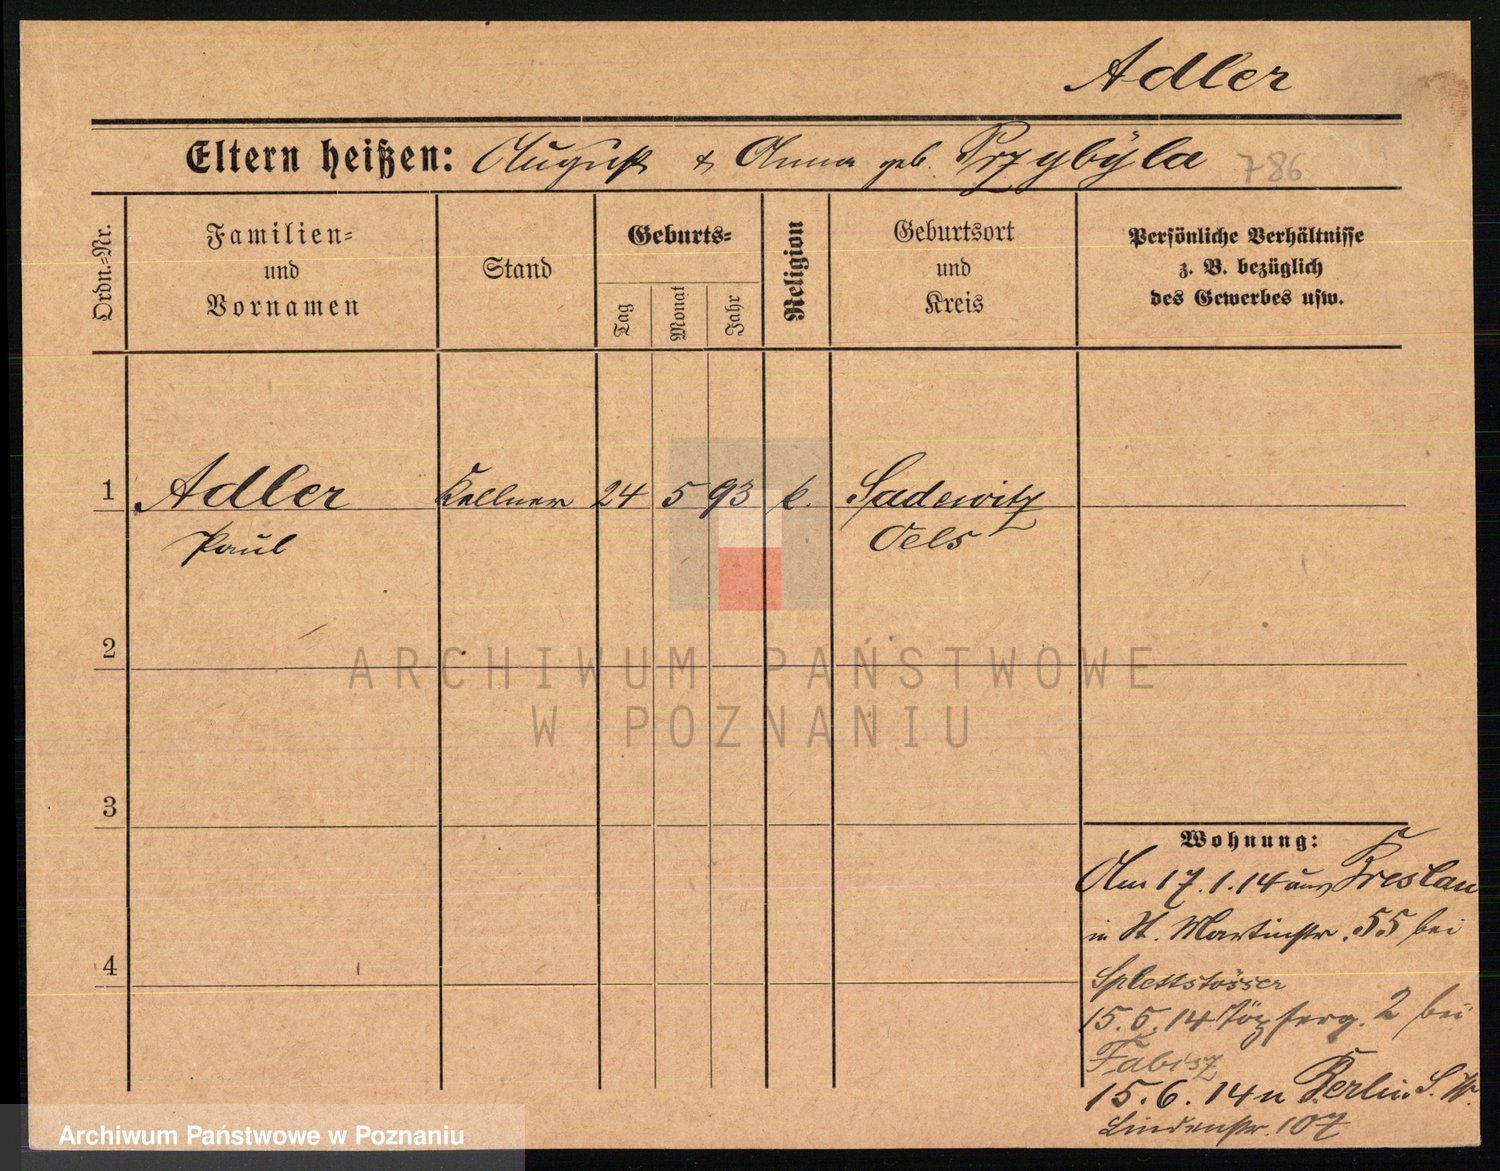 Adler
Eltern heißen: August & Anna geb. Przybÿla 786
Ordn.-Nr.
Familien-
und
Vornamen
Stand
Geburts-
Tag
Monat
Jahr
Religion
Geburtsort
und
Kreis
Persönliche Verhältnisse
z. B. bezüglich
des Gewerbes usw.
1 Adler Kellner 24 5 93 k. Sadewitz
Paul Oels
2
ARCHIWUM PAŃSTWOWE
W POZNANIU
3
Wohnung:
Am 17.1.14 aus Breslau
in St. Martinstr. 55 bei
4
Splettstösser
15.5.14 Töpferg. 2 bei
Fabisz
15.6.14 n Berlin S.W.
Lindenstr. 107
Archiwum Państwowe w Poznaniu